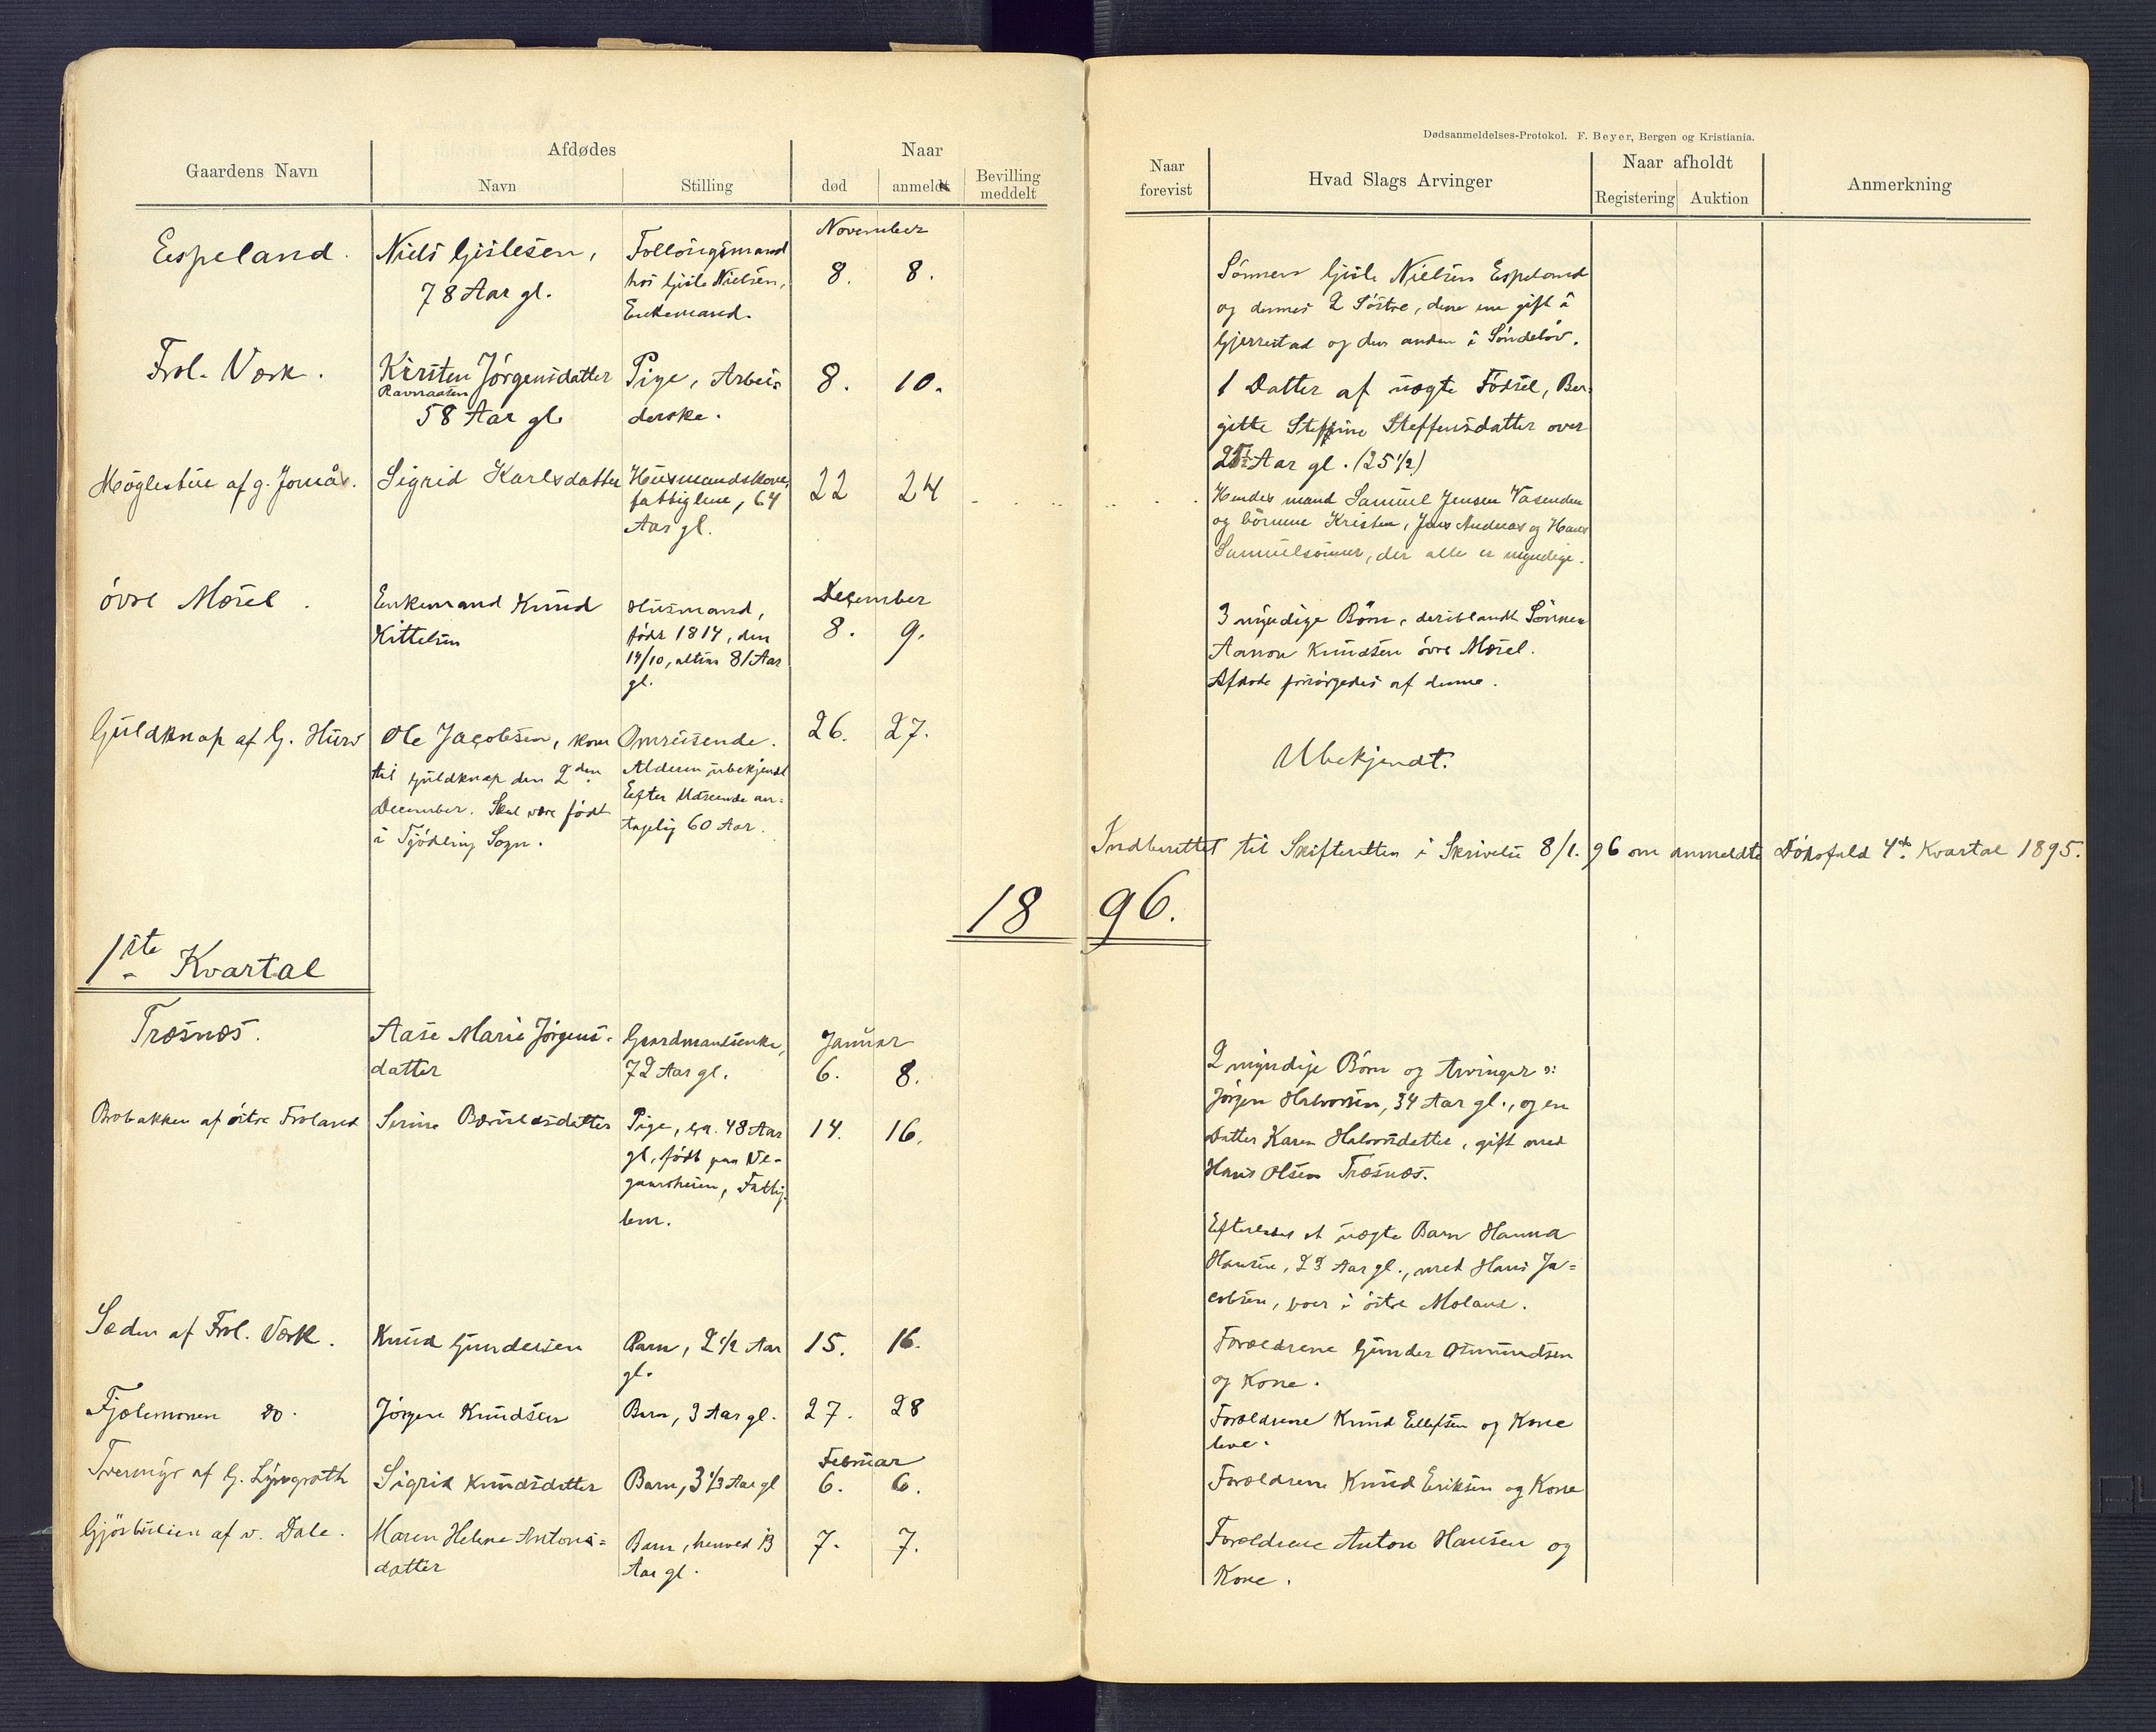 Dødsanmeldelses-Protokol. F. Beyer, Bergen og Kristiania.
Gaardens Navn
Afdødes
Navn
Stilling
Naar
død
anmeldt
Bevilling
meddelt
Naar
forevist
Hvad Slags Arvinger
Naar afholdt
Registering
Auktion
Anmerkning
November
Espeland.
Niels Gislesen,
78 Aar gl.
Føllougsmand
hos Gisle Nielsen,
Enkemand.
8. 8.
Sønnen Gisle Nielsen Espeland
og dennes 2 Søstre, den ene gift i
Gjerrestad og den anden i Søndeløv.
Frol. Værk.
Kirsten Jörgensdatter
Ravnaasen
58 Aar gl.
Pige, Arbei-
derske.
8. 10.
1 Datter af uægte Födsel, Ber-
gitte Steffine Steffensdatter over
25 Aar gl. (25 1/2)
Møglestue af g. Jomås.
Sigrid Karlsdatter
Husmandskone,
fattiglem, 64
Aar gl.
22 24
Hendes mand Samuel Jensen Vasenden
og börnene Kristen, Jens Andreas og Hans
Samuelsönner, der alle er myndige.
December
övre Mæsel.
Enkemand Knud
Kittelsen
Husmand,
født 1814, den
14/10, altsaa 81 Aar
gl.
8. 9.
3 myndige Börn, deriblandt Sönnen
Aanon Knudsen övre Mæsel.
Afdøde forsörgedes af denne.
Guldknap af G. Hurv
Ole Jacobsen, kom
til Guldknap den 2den
December. Skal være født
i Tjödling Sogn.
Omreisende.
Alderen ubekjendt
Efter Udseende an-
tagelig 60 Aar.
26. 27.
Ubekjendt.
Indberettet til Skifteretten i Skrivelse 8/1. 96 om anmeldte Dödsfald 4de Kvartal 1895.
1896.
1ste Kvartal
Januar
Træsnæs.
Aase Marie Jörgens-
datter
Gaardmandsenke,
72 Aar gl.
6. 8.
2 myndige Börn og Arvinger o:
Jörgen Halvorsen, 34 Aar gl., og en
Datter Karen Halvorsdatter, gift med
Hans Olsen Træsnæs.
Brobakken af östre Froland
Serine Bærulvsdatter
Pige, ca. 48 Aar
gl., født paa Ve-
gaarsheien, Fattig-
lem.
14. 16.
Efterlader et uægte Barn Hanna
Hansen, 23 Aar gl., med Hans Ja-
cobsen, boer i östre Moland.
Sæden af Frol. Værk.
Knud Gundersen
Barn, 2 1/2 Aar
gl.
15. 16.
Forældrene Gunder Omundsen
og Kone.
Fjælemonen do.
Jörgen Knudsen
Barn, 3 Aar gl.
27. 28
Forældrene Knud Ellefsen og Kone
leve.
Februar
Tvermyr af G. Lyngroth
Sigrid Knudsdatter
Barn, 3 1/3 Aar gl
6. 6.
Forældrene Knud Eriksen og Kone
af v. Dale.
Maren Helene Antons-
datter
Barn, henved 13
Aar gl.
7. 7.
Forældrene Anton Hansen og
Kone.